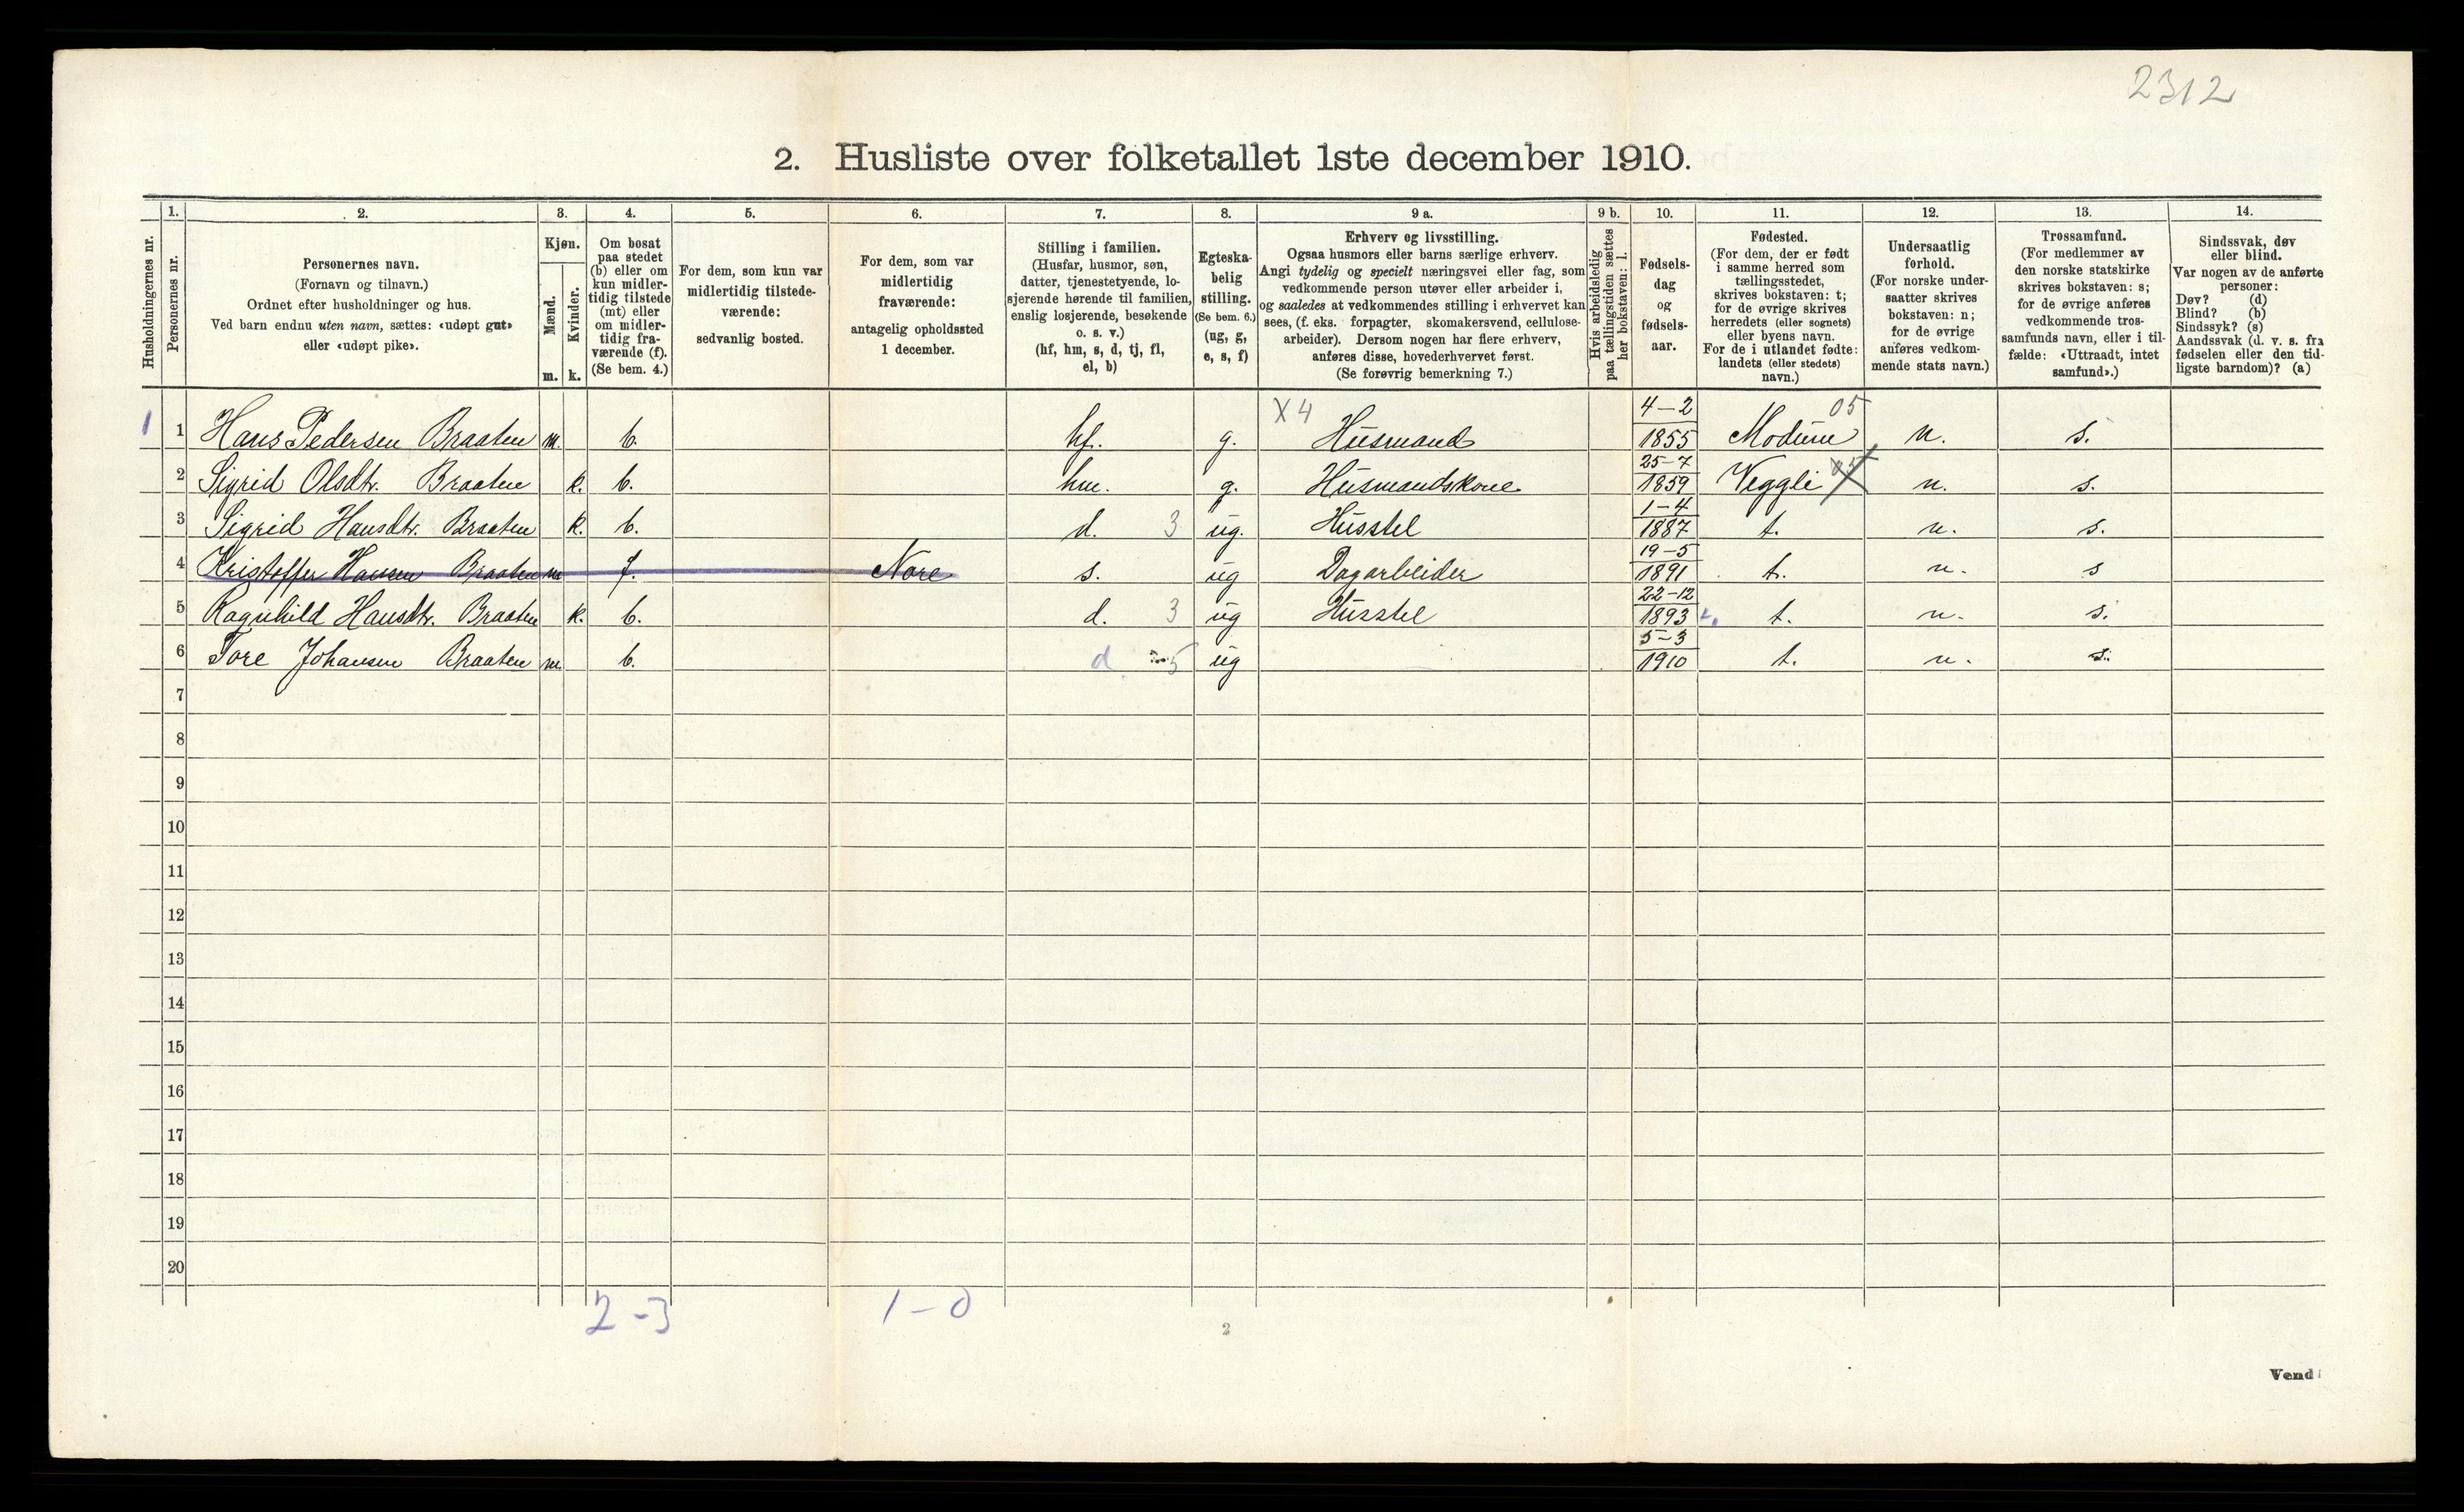 2312
2. Husliste over folketallet 1ste december 1910.
Husholdningernes nr.
1.
Personernes nr.
2.
Personernes navn.
(Fornavn og tilnavn.)
Ordnet efter husholdninger og hus.
Ved barn endnu uten navn, sættes: «udøpt gut»
eller «udøpt pike».
3.
Kjøn.
Mænd.
m.
Kvinder.
k.
4.
Om bosat
paa stedet
(b) eller om
kun midler-
tidig tilstede
(mt) eller
om midler-
tidig fra-
værende (f).
(Se bem. 4.)
5.
For dem, som kun var
midlertidig tilstede-
værende:
sedvanlig bosted.
6.
For dem, som var
midlertidig
fraværende:
antagelig opholdssted
1 december.
7.
Stilling i familien.
(Husfar, husmor, søn,
datter, tjenestetyende, lo-
sjerende hørende til familien,
enslig losjerende, besøkende
o. s. v.)
(hf, hm, s, d, tj, fl,
el, b)
8.
Egteska-
belig
stilling.
(Se bem. 6.)
(ug, g,
e, s, f)
9 a.
Erhverv og livsstilling.
Ogsaa husmors eller barns særlige erhverv.
Angi tydelig og specielt næringsvei eller fag, som
vedkommende person utøver eller arbeider i,
og saaledes at vedkommendes stilling i erhvervet kan
sees, (f. eks. forpagter, skomakersvend, cellulose-
arbeider). Dersom nogen har flere erhverv,
anføres disse, hovederhvervet først.
(Se forøvrig bemerkning 7.)
9 b.
Hvis arbeidsledig
paa tællingstiden sættes
her bokstaven: l.
10.
Fødsels-
dag
og
fødsels-
aar.
11.
Fødested.
(For dem, der er født
i samme herred som
tællingsstedet,
skrives bokstaven: t;
for de øvrige skrives
herredets (eller sognets)
eller byens navn.
For de i utlandet fødte:
landets (eller stedets)
navn.)
12.
Undersaatlig
forhold.
(For norske under-
saatter skrives
bokstaven: n;
for de øvrige
anføres vedkom-
mende stats navn.)
13.
Trossamfund.
(For medlemmer av
den norske statskirke
skrives bokstaven: s;
for de øvrige anføres
vedkommende tros-
samfunds navn, eller i til-
fælde: «Uttraadt, intet
samfund».)
14.
Sindssvak, døv
eller blind.
Var nogen av de anførte
personer:
Døv? (d)
Blind? (b)
Sindssyk? (s)
Aandssvak (d. v. s. fra
fødselen eller den tid-
ligste barndom)? (a)
1 1 Hans Pedersen Braaten m. b. hf. g. X 4 Husmand 4-2 1855 Modum 05 n. s.
2 Sigrid Olsdtr. Braaten k. b. hm. g. Husmandskone 25-7 1859 Veggli n. s.
3 Sigrid Hansdtr. Braaten k. b. d. 3 ug. Husstel 1-4 1887 t. n. s.
4 Kristoffer Hansen Braaten m f. Nore s. ug Dagarbeider 19-5 1891 t. n. s
5 Ragnhild Hansdtr. Braaten k. b. d. 3 ug Husstel 22-12 1893 t. n. s.
6 Tore Johansen Braaten m. b. d 5 ug 5-3 1910 t. n. s.
7
8
9
10
11
12
13
14
15
16
17
18
19
20
2-3 1-0
2
Vend